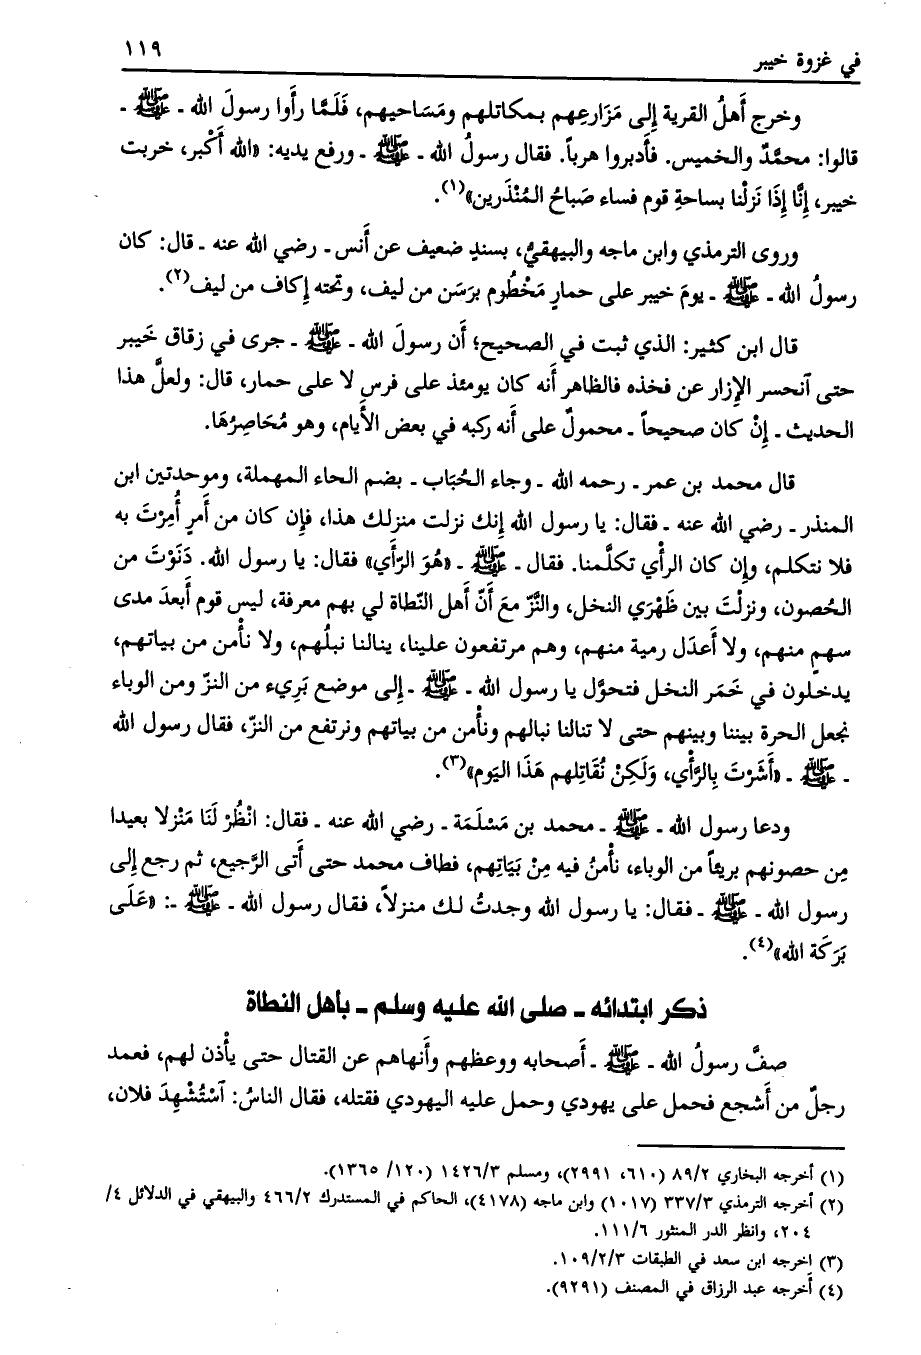 في غزوة خيبر
١١٩
وخرج أَهلُ القرية إِلى مَزَارِعِهم بمكاتلهم ومَسَاحيهم، فَلَمَّا رأَوا رسولَ الله ـ ﷺ ـ
قالوا: محمَّدٌ والخميس. فأَدبروا هرباً. فقال رسولُ الله ـ ﷺ ـ ورفع يديه: «الله أَكْبر، خربت
خيبر، إِنَّا إِذَا نَزلْنا بساحةِ قوم فساء صَباحُ المُنْذَرين»(١).
وروى الترمذي وابن ماجه والبيهقيُّ، بسندٍ ضعيف عن أَنس ـ رضي الله عنه ـ قال: كان
رسولُ الله ـ ﷺ ـ يومَ خيبر على حمارٍ مَخْطُوم برَسَن من ليف، وتحته إكاف من ليف(٢).
قال ابن كثير: الذي ثبت في الصحيح؛ أن رسولَ الله ـ ﷺ ـ جرى في زقاق خَيبر
حتى آنحسر الإِزار عن فخذه فالظاهر أَنه كان يومئذ على فرس لا على حمار، قال: ولعلَّ هذا
الحديث ـ إِنْ كان صحيحاً ـ محمولٌ على أَنه ركبه في بعض الأَيام، وهو مُحَاصِرُهَا.
قال محمد بن عمر ـ رحمه الله ـ وجاء الحُبَاب ـ بضم الحاء المهملة، وموحدتين ابن
المنذر ـ رضي الله عنه ـ فقال: يا رسول الله إِنك نزلت منزلك هذا، فإِن كان من أَمرٍ أُمِرْتَ به
فلا نتكلم، وإِن كان الرأْي تكلَّمنا. فقال ـ ﷺ ـ «هُوَ الرّأَي» فقال: يا رسول الله. دَنَوْتَ من
الحُصون، ونزلْتَ بين ظَهْرَي النخل، والنَّزّ معَ أَنّ أَهل النّطاة لي بهم معرفة، ليس قوم أَبعدَ مدى
سهمٍ منهم، ولا أَعدَل رمية منهم، وهم مرتفعون علينا، ينالنا نبلُهم، ولا نأْمن من بياتهم،
يدخلون في خَمَر النخل فتحوَّل يا رسول الله ـ ﷺ ـ إِلى موضع بَرِيء من النزّ ومن الوباء
نجعل الحرة بيننا وبينهم حتى لا تنالنا نبالهم ونأْمن من بياتهم ونرتفع من النزّ، فقال رسول الله
ـ ﷺ ـ «أَشَرْتَ بِالرَّأْي، وَلَكِنْ نُقَاتِلهم هَذَا اليَوم»(٣).
ودعا رسول الله ـ ﷺ ـ محمد بن مَسْلَمَة ـ رضي الله عنه ـ فقال: انْظُرْ لَنَا مَنْزلا بعيدا
مِن حصونهم بريئاً من الوباء، نأْمنُ فيه مِنْ بَيَاتِهم، فطاف محمد حتى أَتى الرَّجيع، ثم رجع إِلى
رسول الله ـ ﷺ ـ فقال: يا رسول الله وجدتُ لك منزلاً، فقال رسول الله ـ ﷺ ـ: «عَلَى
بَرَكَة الله»(٤).
ذكر ابتدائه ـ صلى الله عليه وسلم ـ بأهل النطاة
صفَّ رسولُ الله ـ ﷺ ـ أَصحابه ووعظهم وأَنهاهم عن القتال حتى يأْذن لهم، فعمد
رجلٌ من أَشجع فحمل على يهودي وحمل عليه اليهودي فقتله، فقال الناسُ: آسْتُشْهِدَ فلان،
(١) أخرجه البخاري ٨٩/٢ (٦١٠، ٢٩٩١)، ومسلم ١٤٢٦/٣ (١٢٠/ ١٣٦٥).
(٢) أخرجه الترمذي ٣٣٧/٣ (١٠١٧) وابن ماجه (٤١٧٨)، الحاكم في المستدرك ٤٦٦/٢ والبيهقي في الدلائل ٤/
٢٠٤، وانظر الدر المنثور ١١١/٦.
(٣) اخرجه ابن سعد في الطبقات ١٠٩/٢/٣.
(٤) أخرجه عبد الرزاق في المصنف (٩٢٩١).